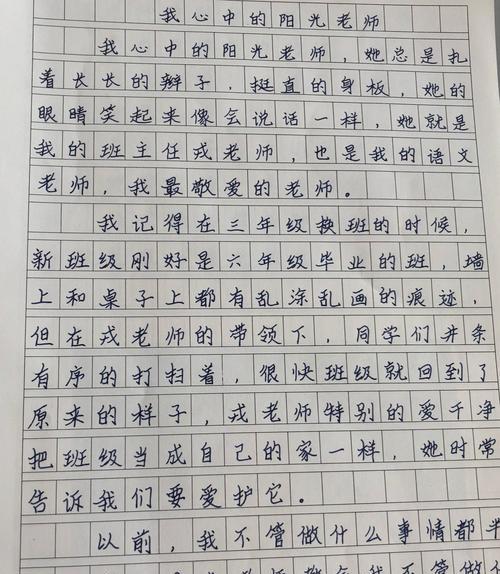 我心中的阳光老师
我心中的阳光老师，她总是扎
着长长的辫子，挺直的身板，她的
眼睛笑起来像会说话一样，她就是
我的班主任戎老师，也是我的语文
老师，我最敬爱的老师。
我记得在三年级换班的时候，
新班级刚好是六年级毕业的班，墙
上和桌子上都有乱涂乱画的痕迹，
但在戎老师的带领下，同学们井条
有序的打扫着，很快班级就回到了
原来的样子，戎老师特别的爱干净
把班级当成自己的家一样，她时常
告诉我们要爱护它。
以前，我不管做什么事情都半
我不管做